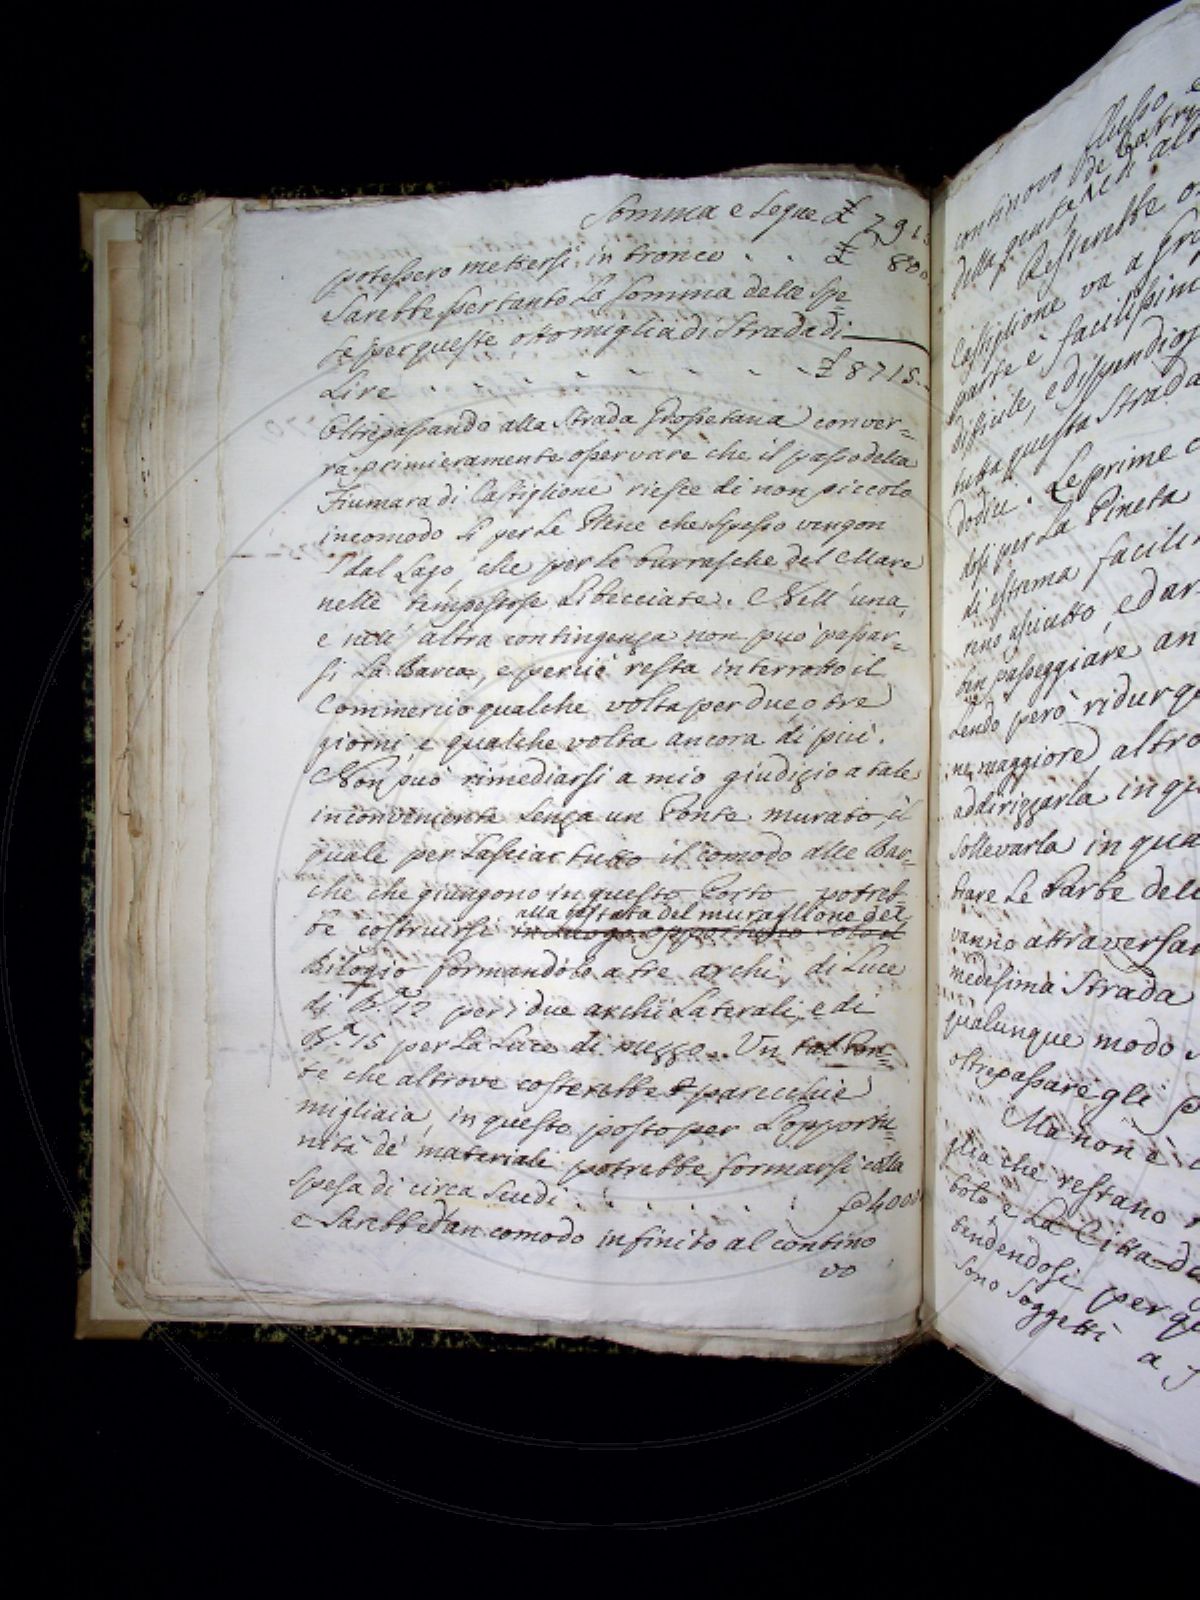 Somma e segue £ 791
potessero mettersi in tronco . . £ 800
Sarebbe pertanto La Somma delle Spe
se per queste otto miglia di Strada di
Lire . . . . . . . £ 8715.
Oltrepassando alla Strada Grossetana conver-
rà primieramente osservare che il passo della
Fiumara di Castiglione riesce di non piccolo
incomodo sì per le Piene che spesso vengon
dal Lago, che per le burrasche del Mare
nelle tempestose Libecciate. Nell' una,
e nell' altra contingenza non può passar-
si La Barca, e perciò resta interrotto il
Commercio qualche volta per due o tre
giorni e qualche volta ancora di più.
Non può rimediarsi a mio giudizio a tale
inconveniente senza un Ponte murato il
quale per lasciar tutto il comodo alle Bar-
che che giungono in questo Porto potreb-
alla testata del muraglione del
be costruirsi in luogo opportuno
Bilogio formandolo a tre archi, di Luce
di B.a 12 per i due archi Laterali, e di
B.a 15 per La Luce di mezzo. Un tal Pon-
te che altrove costerebbe parecchie
migliaia, in questo posto per L'opportu-
nità de' materiali potrebbe formarsi colla
spesa di circa Scudi . . . . . 4000
e Sarebbe d'un comodo infinito al contino
vo
flusso e
continovo de
della gente
Resterebbe
Castiglione va a Gro
parte è facilissim
difficile, e dispendios
tutta questa Strada
dodici. Le prime
dosi per La Pineta
di estrema facili
reno asciutto, e dar
ben passeggiare an
Lendo però ridurq
ne maggiore, altro
addirizzarla in qu
sollevarla in qua
trare Le Parte dell
vanno attraversan
medesima Strada
qualunque modo
oltrepassare gli
Ma non è
glia che restano
bolo e La Città d
tendendosi per qu
sono soggetti a